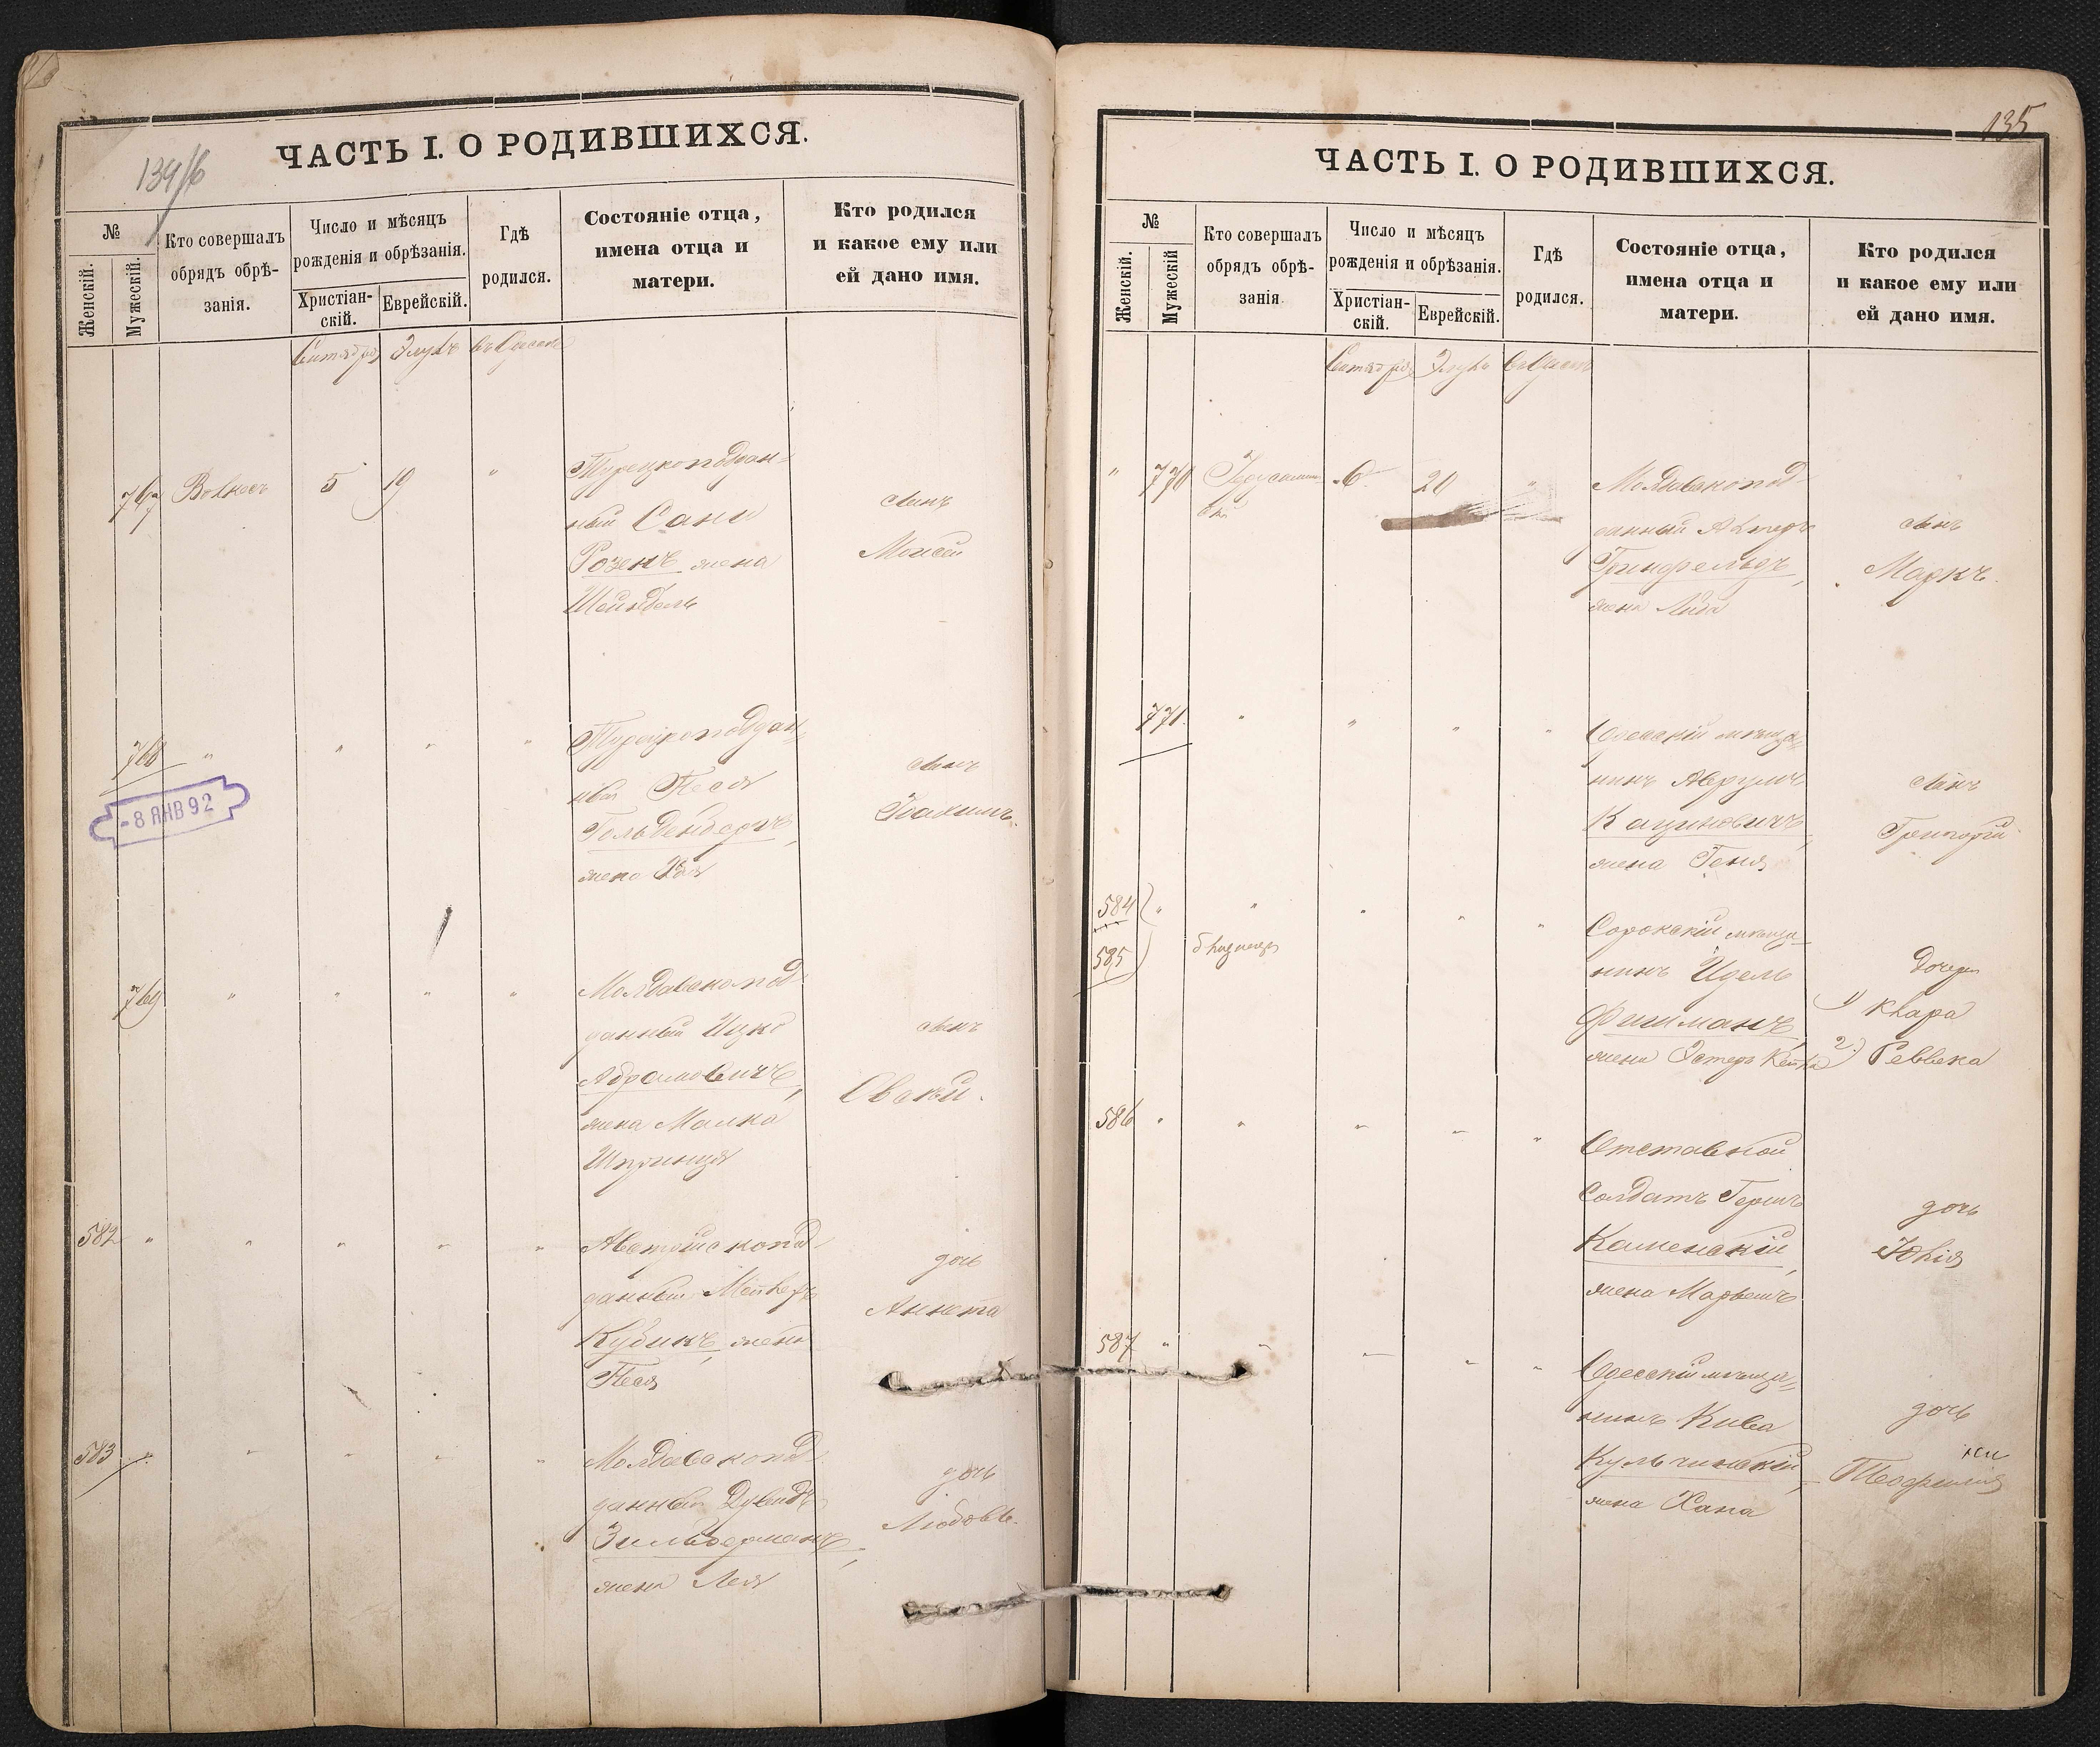 134/б
ЧАСТЬ I. О РОДИВШИХСЯ.
№
Женскій.
Мужескій.
Кто совершалъ
обрядъ обрѣ-
занія.
Число и мѣсяцъ
рожденія и обрѣзанія.
Христіан-
скій.
Еврейскій.
Гдѣ
родился.
Состояніе отца,
имена отца и
матери.
Кто родился
и какое ему или
ей дано имя.
Сентября Элулъ въ Одессѣ
767 5 19 "
Турецкоподдан-
ный Сани
Розенъ жена
Шейндель
сынъ
Моисей
768 " " " "
Турецкоподдан-
ный
Гольденбергъ,
жена Хая
сынъ
Іоакимъ.
-8 ЯНВ 92
769 " " " "
Молдавскопод-
данный Ицко
Абрамовичъ,
жена Малка
Шпринця
сынъ
Овсѣй.
582 " " " " "
Австрійскопод-
данный
Кубикъ, жена
Песя
дочь
Аннета
583 " " " " "
Молдавскопод-
данный Дувидъ
Зильберманъ,
жена Лея
дочь
Любовь.
135
ЧАСТЬ I. О РОДИВШИХСЯ.
№
Женскій.
Мужескій
Кто совершалъ
обрядъ обрѣ-
занія.
Число и мѣсяцъ
рожденія и обрѣзанія.
Христіан-
скій.
Еврейскій.
Гдѣ
родился.
Состояніе отца,
имена отца и
матери.
Кто родился
и какое ему или
ей дано имя.
Сентября Элулъ въ Одессѣ
" 770 6 20 "
Молдавскопод-
данный
Гринфельдъ,
жена
сынъ
Маркъ.
771. " " " "
Одесскій мѣща-
нинъ Аврумъ
Кациновичъ,
жена Геня
сынъ
Григорій
584 " " " " "
585 близнецы
Сорокскій мѣща-
нинъ Идель
Фишманъ,
жена Эстеръ Кейла
Дочери
1) Клара
2) Реввека
586 " " " " "
Отставной
Солдатъ Гершъ
Каменскій,
жена
дочь
Юлія
587 " " " " "
Одесскій мѣща-
нинъ Кива
Кульчинскій,
жена Хана
дочь
Теофилія